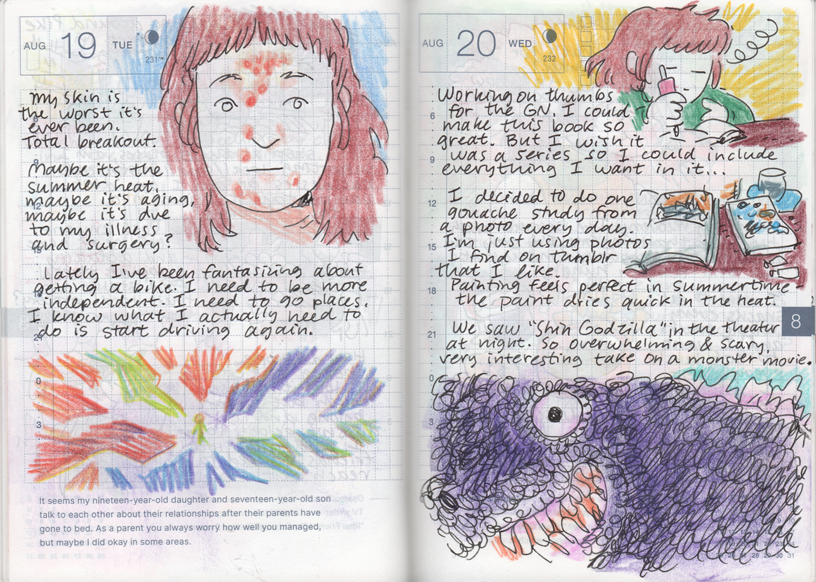 AUG 19 TUE
231
My skin is
the worst it's
ever been.
Total breakout.
Maybe it's the
summer heat,
maybe it's aging,
maybe it's due
to my illness
and surgery?
Lately I've been fantasizing about
getting a bike. I need to be more
independent. I need to go places.
I know what I actually need to
do is start driving again.
It seems my nineteen-year-old daughter and seventeen-year-old son
talk to each other about their relationships after their parents have
gone to bed. As a parent you always worry how well you managed,
but maybe I did okay in some areas.
AUG 20 WED
232
Working on thumbs
for the GN. I could
make this book so
great. But I wish it
was a series, so I could include
everything I want in it...
I decided to do one
gouache study from
a photo every day.
I'm just using photos
I find on tumblr
that I like.
Painting feels perfect in summertime -
the paint dries quick in the heat.
We saw "Shin Godzilla" in the theatur
at night. So overwhelming & scary,
very interesting take on a monster movie.
8